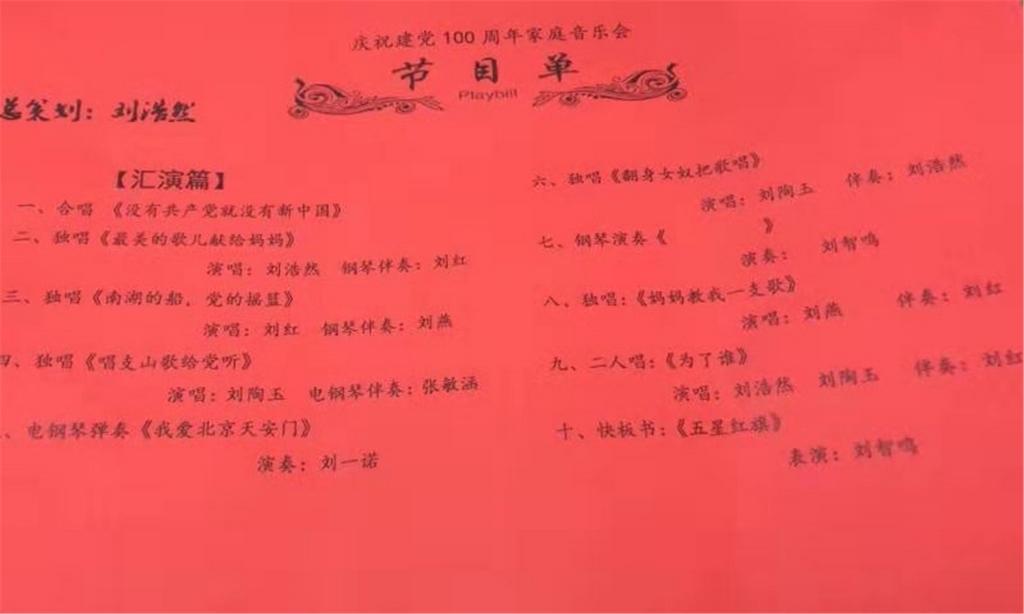 庆祝建党100周年家庭音乐会
节目单
Playbill
总策划：刘浩然
【汇演篇】
一、合唱 《没有共产党就没有新中国》
二、独唱《最美的歌儿献给妈妈》
演唱：刘浩然 钢琴伴奏：刘红
三、独唱《南湖的船，党的摇篮》
演唱：刘红 钢琴伴奏：刘燕
四、独唱《唱支山歌给党听》
演唱：刘陶玉 电钢琴伴奏：张敏涵
、电钢琴弹奏《我爱北京天安门》
演奏：刘一诺
六、独唱《翻身女奴把歌唱》
演唱：刘陶玉 伴奏：刘浩然
七、钢琴演奏《 》
演奏： 刘智鸣
八、独唱：《妈妈教我一支歌》
演唱：刘燕 伴奏：刘红
九、二人唱：《为了谁》
演唱：刘浩然 刘陶玉 伴奏：刘红
十、快板书：《五星红旗》
表演：刘智鸣